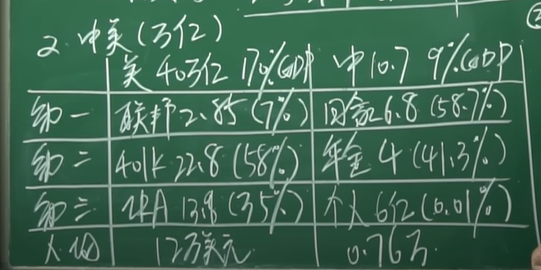 2. 中美(万亿)
美 40万亿 170%GDP 中 10.7 9%GDP
第一 联邦 2.85 (7%) 国家 6.8 (58.7%)
第二 401k 22.8 (58%) 年金 4 (41.3%)
第三 IRA 13.9 (35%) 个人 6亿 (0.01%)
人均 12万美元 0.76万